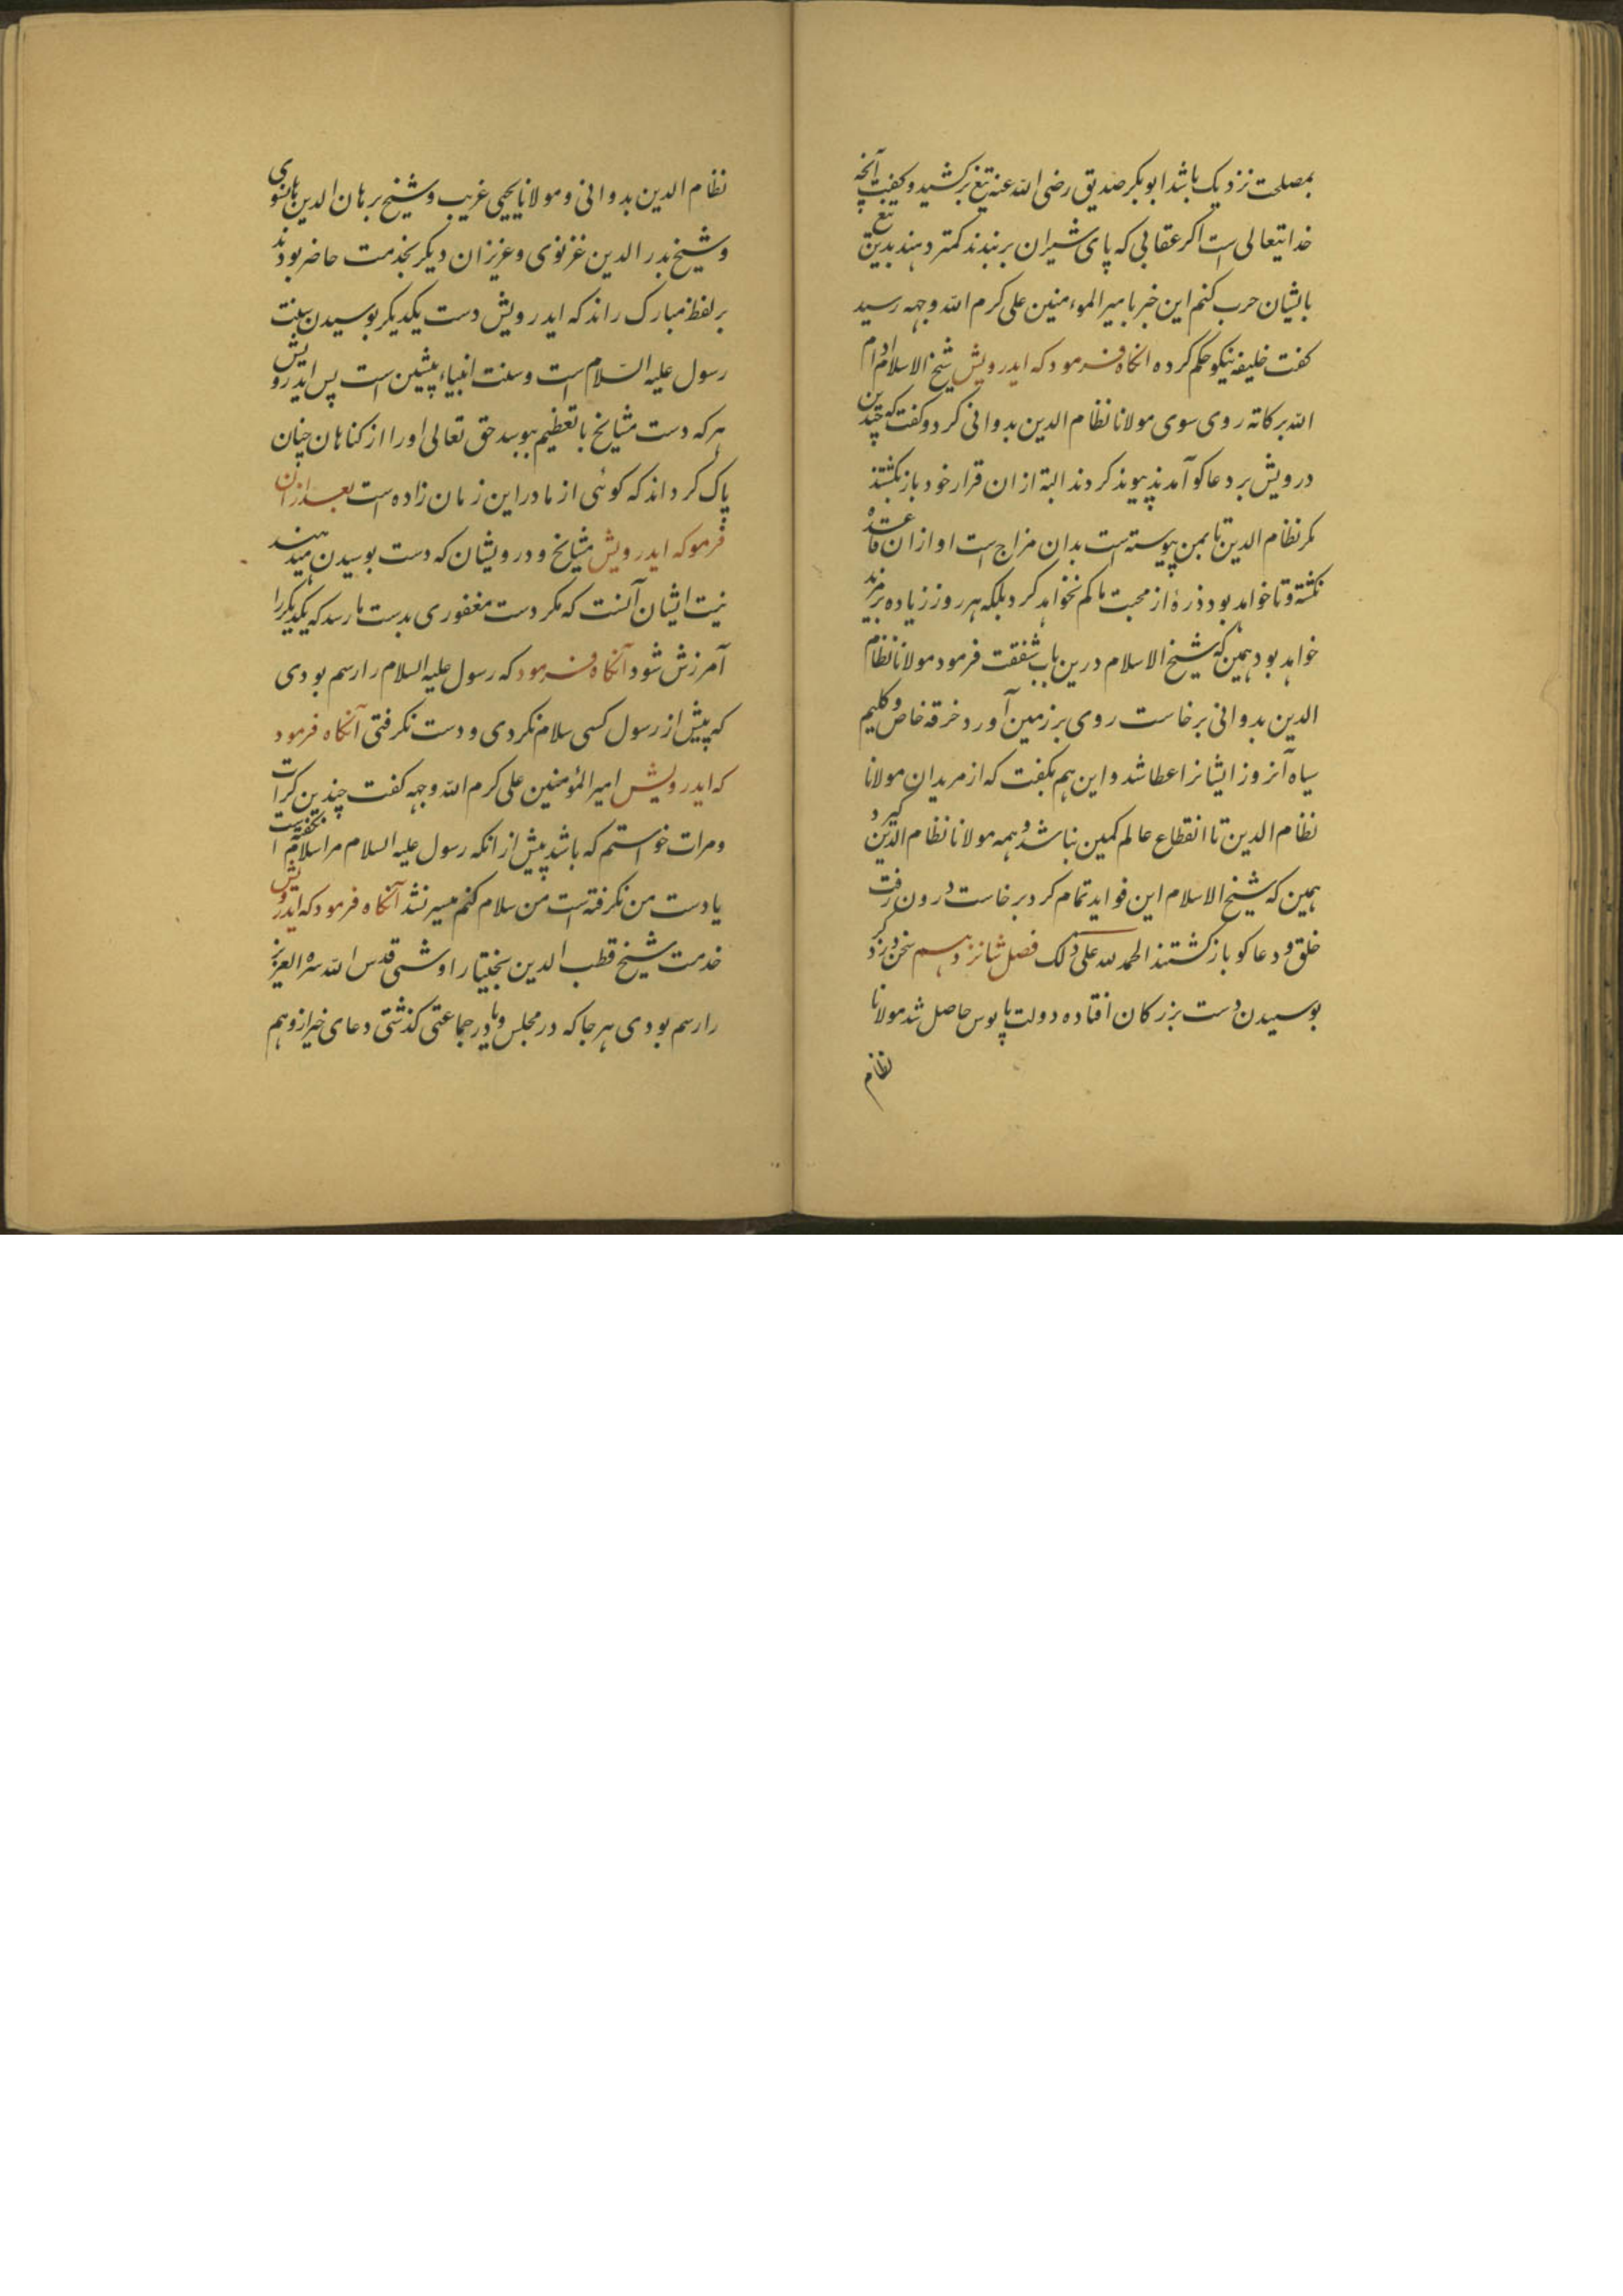 بمصلحت نزدیک باشد ابوبکر صدیق رضی الله عنه تیغ برکشید و کفت آنچه
خدایتعالی است اکر عقالی که پای شیران بربندند کمتر دهند بدین تیغ
بایشان حرب کنم این خبر بامیر المومنین علی کرم الله وجهه رسید
کفت خلیفه نیکو حکم کرده انکاه فرمود که ایدرویش شیخ الاسلام ادام
الله برکاته روی سوی مولانا نظام الدین بدوانی کرد و کفت که چندین
درویش بر دعاکو آمدند پیوند کردند البته ازان قرار خود بازکشتند
مکر نظام الدین تا بمن پیوسته است بدان مزاج است او ازان قاعده
نکشته و تا خواهد بود ذرهٔ از محبت ما کم نخواهد کرد بلکه هر روز زیاده بر مزید
خواهد بود همین که شیخ الاسلام درین باب شفقت فرمود مولانا نظام
الدین بدوانی برخاست روی بر زمین آورد خرقه خاص و کلیم
سیاه آنروز ایشانرا عطا شد و این هم بکفت که از مریدان مولانا
نظام الدین تا انقطاع عالم کمین نباشد و همه مولانا نظام الدین کیرد
همین که شیخ الاسلام این فواید تمام کرد برخاست درون رفت
خلق و دعاکو بازکشتند الحمد لله علی ذلک فصل شانزدهم سخن در ذکر
بوسیدن دست بزرکان افتاده دولت پابوس حاصل شد مولانا
نظام
نظام الدین بدوانی و مولانا یحیی غریب و شیخ برهان الدین هانسوی
و شیخ بدر الدین غزنوی و عزیزان دیکر بخدمت حاضر بودند
بر لفظ مبارک راند که ایدرویش دست یکدیکر بوسیدن سنت
رسول علیه السلام است و سنت انبیاء پیشین است پس ایدرویش
هرکه دست مشایخ با تعظیم ببوسد حق تعالی اورا از کناهان چنان
پاک کرداند که کوئی از مادر این زمان زاده است بعد ازان
فرموکه ایدرویش مشایخ و درویشان که دست بوسیدن میدهند
نیت ایشان آنست که مکر دست مغفوری بدست ما رسد که یکدیکررا
آمرزش شود آنکاه فرمود که رسول علیه السلام را رسم بودی
که پیش از رسول کسی سلام نکردی و دست نکرفتی آنکاه فرمود
که ایدرویش امیر المؤمنین علی کرم الله وجهه کفت چندین کرات
ومرات خواستم که باشد پیش از انکه رسول علیه السلام مرا سلام نکفته است
یا دست من نکرفته است من سلام کنم میسر نشد آنکاه فرمود که ایدرویش
خدمت شیخ قطب الدین بختیار اوشی قدس الله سره العزیز
را رسم بودی هر جا که در مجلس و یا در جماعتی کذشتی دعای خیر ازو هم